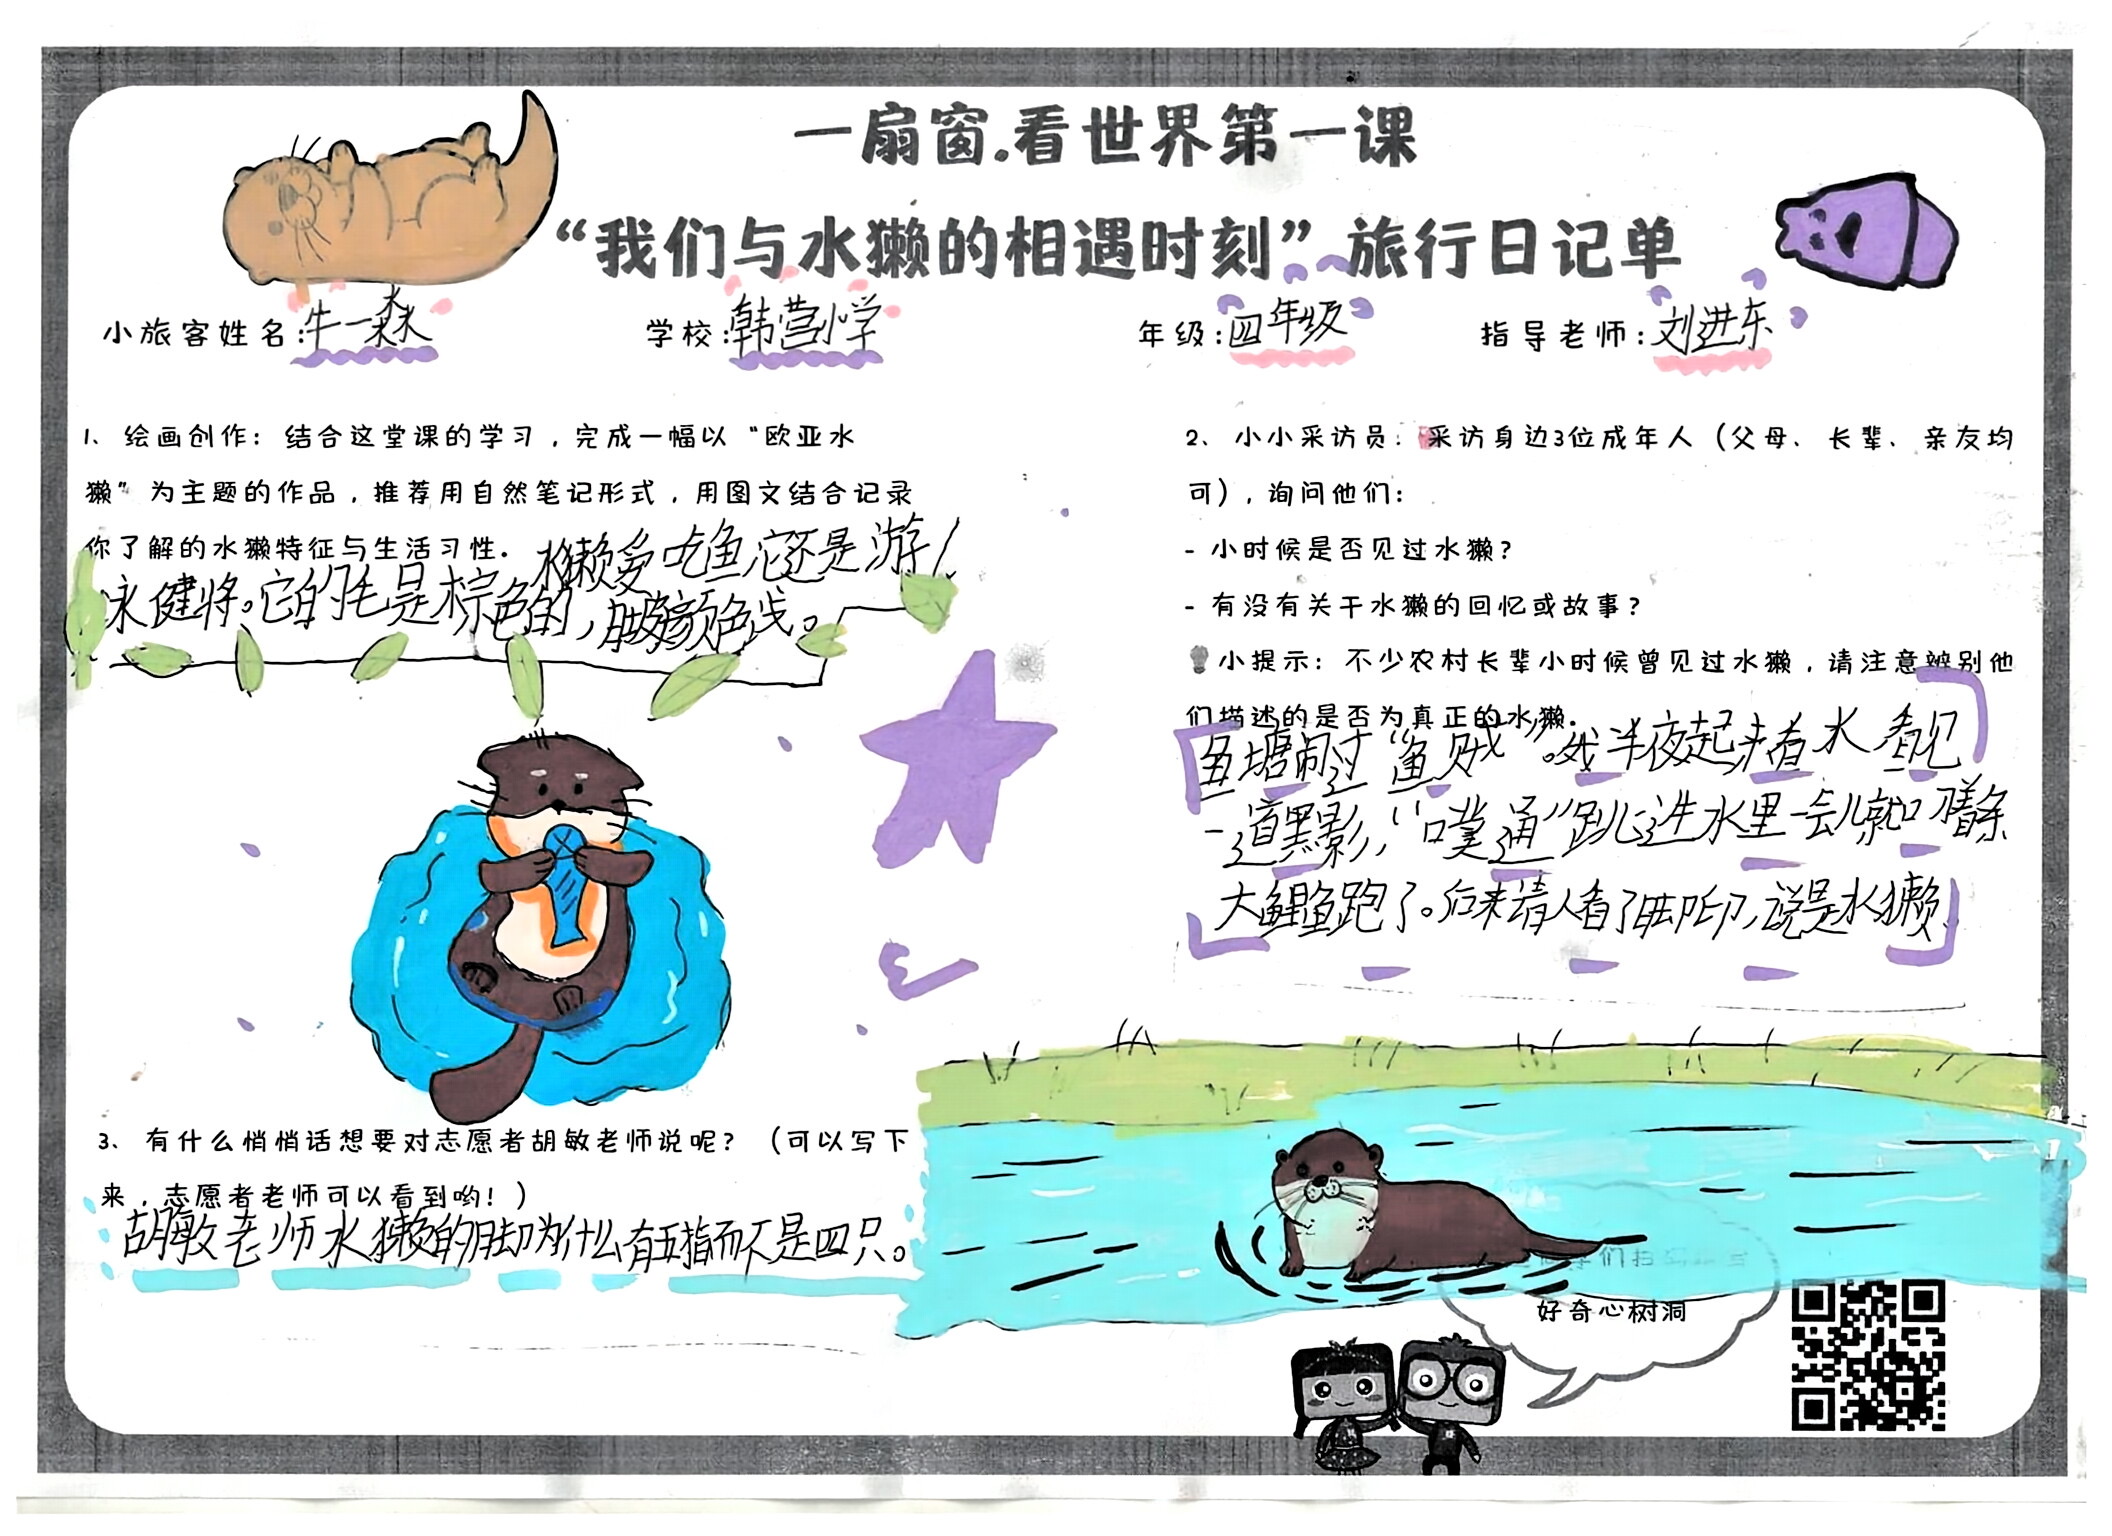 一扇窗.看世界第一课
“我们与水獭的相遇时刻”旅行日记单
小旅客姓名:牛一淼 学校:韩营小学 年级:四年级 指导老师:刘进东
1、绘画创作：结合这堂课的学习，完成一幅以“欧亚水
獭”为主题的作品，推荐用自然笔记形式，用图文结合记录
你了解的水獭特征与生活习性.
水獭爱吃鱼,它还是游
泳健将。它的毛是棕色的,腹部颜色浅。
2、小小采访员：采访身边3位成年人（父母、长辈、亲友均
可），询问他们：
- 小时候是否见过水獭？
- 有没有关于水獭的回忆或故事？
小提示：不少农村长辈小时候曾见过水獭，请注意辨别他
们描述的是否为真正的水獭.
鱼塘闹过“鱼贼”。我半夜起来看水 看见
一道黑影,“噗通”跳进水里一会儿就叼着条
大鲤鱼跑了。后来请人看了脚印,说是水獭.
3、有什么悄悄话想要对志愿者胡敏老师说呢？（可以写下
来，志愿者老师可以看到哟！）
胡敏老师水獭的脚为什么有五指而不是四只。
好奇心树洞